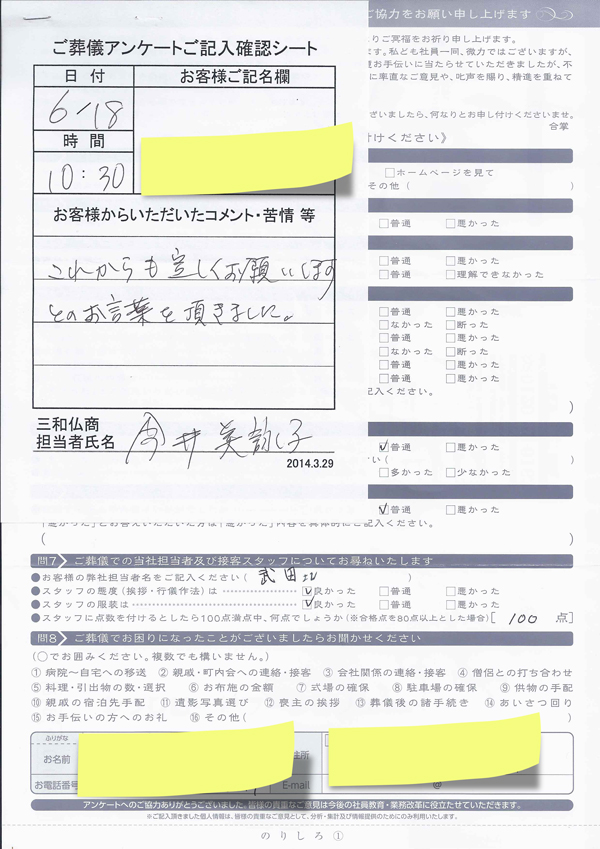 ご協力をお願い申し上げます
ご葬儀アンケートご記入確認シート
日付
お客様ご記名欄
6/18
時間
10:30
お客様からいただいたコメント・苦情 等
これからも宜しくお願いします
とのお言葉を頂きました。
三和仏商
担当者氏名
2014.3.29
りご冥福をお祈り申し上げます。
す。私ども社員一同、微力ではございますが、
お手伝いに当たらせていただきましたが、不
に率直なご意見や、叱声を賜り、精進を重ねて
ざいましたら、何なりとお申し付けくださいませ。
合掌
付けください》
□ホームページを見て
その他(　)
□普通 □悪かった
□普通 □悪かった
□普通 □理解できなかった
□普通 □悪かった
□なかった □断った
□普通 □悪かった
□なかった □断った
□普通 □悪かった
□普通 □悪かった
記入ください。
)
☑普通 □悪かった
さい(　)
□多かった □少なかった
☑普通 □悪かった
「悪かった」とお答えいただいた方は「悪かった」内容を具体的にご記入ください。
(　)
問7 ご葬儀での当社担当者及び接客スタッフについてお尋ねいたします
●お客様の弊社担当者名をご記入ください( 武田 )
●スタッフの態度(挨拶・行儀作法)は ☑良かった □普通 □悪かった
●スタッフの服装は ☑良かった □普通 □悪かった
●スタッフに点数を付けるとしたら100点満点中、何点でしょうか(※合格点を80点以上とした場合)[ 100 点]
問8 ご葬儀でお困りになったことがございましたらお聞かせください
(○でお囲みください。複数でも構いません。)
①病院〜自宅への移送 ②親戚・町内会への連絡・接客 ③会社関係の連絡・接客 ④僧侶との打ち合わせ
⑤料理・引出物の数・選択 ⑥お布施の金額 ⑦式場の確保 ⑧駐車場の確保 ⑨供物の手配
⑩親戚の宿泊先手配 ⑪遺影写真選び ⑫喪主の挨拶 ⑬葬儀後の諸手続き ⑭あいさつ回り
⑮お手伝いの方へのお礼 ⑯その他(　)
ふりがな
お名前
住所
お電話番号
E-mail
@
アンケートへのご協力ありがとうございました。皆様の貴重なご意見は今後の社員教育・業務改革に役立たせていただきます。
※ご記入頂きました個人情報は、皆様の貴重なご意見として、分析・集計及び情報提供のためにのみ利用いたします。
のりしろ①